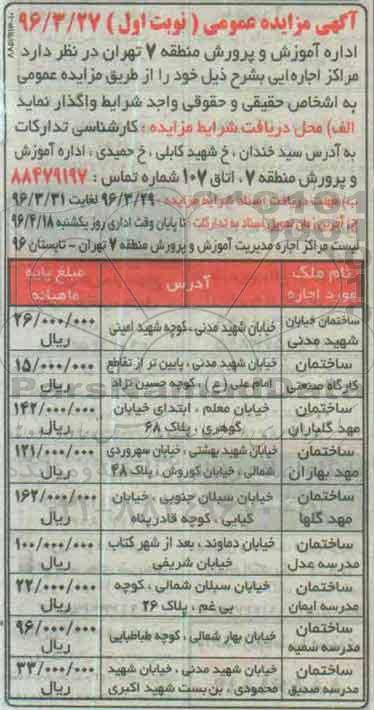 آگهی مزایده عمومی ( نوبت اول ) ۹۶/۳/۲۷
اداره آموزش و پرورش منطقه ۷ تهران در نظر دارد
مراکز اجاره‌ایی بشرح ذیل خود را از طریق مزایده عمومی
به اشخاص حقیقی و حقوقی واجد شرایط واگذار نماید
الف) محل دریافت شرایط مزایده : کارشناسی تدارکات
به آدرس سید خندان ، خ شهید کابلی ، خ حمیدی ، اداره آموزش
و پرورش منطقه ۷، اتاق ۱۰۷ شماره تماس : ۸۸۴۷۹۱۹۷
ب) مهلت دریافت اسناد شرایط مزایده : ۹۶/۳/۲۹ لغایت ۹۶/۳/۳۱
ج) آخرین زمان تحویل اسناد به تدارکات : تا پایان وقت اداری روز یکشنبه ۹۶/۴/۱۸
لیست مراکز اجاره مدیریت آموزش و پرورش منطقه ۷ تهران - تابستان ۹۶
نام ملک مورد اجاره آدرس مبلغ پایه ماهیانه
ساختمان خیابان شهید مدنی خیابان شهید مدنی ، کوچه شهید امینی ۲۶/۰۰۰/۰۰۰ ریال
ساختمان کارگاه صنعتی خیابان شهید مدنی ، پایین تر از تقاطع امام علی (ع) ، کوچه حسین نژاد ۱۵/۰۰۰/۰۰۰ ریال
ساختمان مهد گلباران خیابان معلم ، ابتدای خیابان گوهری ، پلاک ۶۸ ۱۴۲/۰۰۰/۰۰۰ ریال
ساختمان مهد بهاران خیابان شهید بهشتی ، خیابان سهروردی شمالی ، خیابان کوروش ، پلاک ۴۸ ۱۲۱/۰۰۰/۰۰۰ ریال
ساختمان مهد گلها خیابان سبلان جنوبی ، خیابان کیایی ، کوچه قادرپناه ۱۶۲/۰۰۰/۰۰۰ ریال
ساختمان مدرسه عدل خیابان دماوند ، بعد از شهر کتاب خیابان شریفی ۱۰۰/۰۰۰/۰۰۰ ریال
ساختمان مدرسه ایمان خیابان سبلان شمالی ، کوچه بی غم ، پلاک ۲۶ ۲۲/۰۰۰/۰۰۰ ریال
ساختمان مدرسه سمیه خیابان بهار شمالی ، کوچه طباطبایی ۹۶/۰۰۰/۰۰۰ ریال
ساختمان مدرسه صدیق خیابان شهید مدنی ، خیابان شهید محمودی ، بن بست شهید اکبری ۳۳/۰۰۰/۰۰۰ ریال